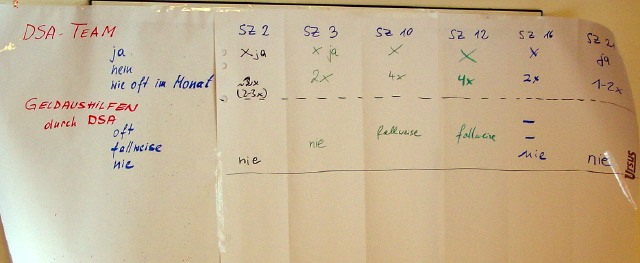 DSA-TEAM SZ 2 SZ 3 SZ 10 SZ 12 SZ 16 SZ 2
ja x ja x ja x x x ja
nein
wie oft im Monat 2x 4x 4x 2x 1-2x
(2-3x)
GELDAUSHILFEN
durch DSA
oft
fallweise nie fallweise fallweise
nie nie nie nie
URSUS